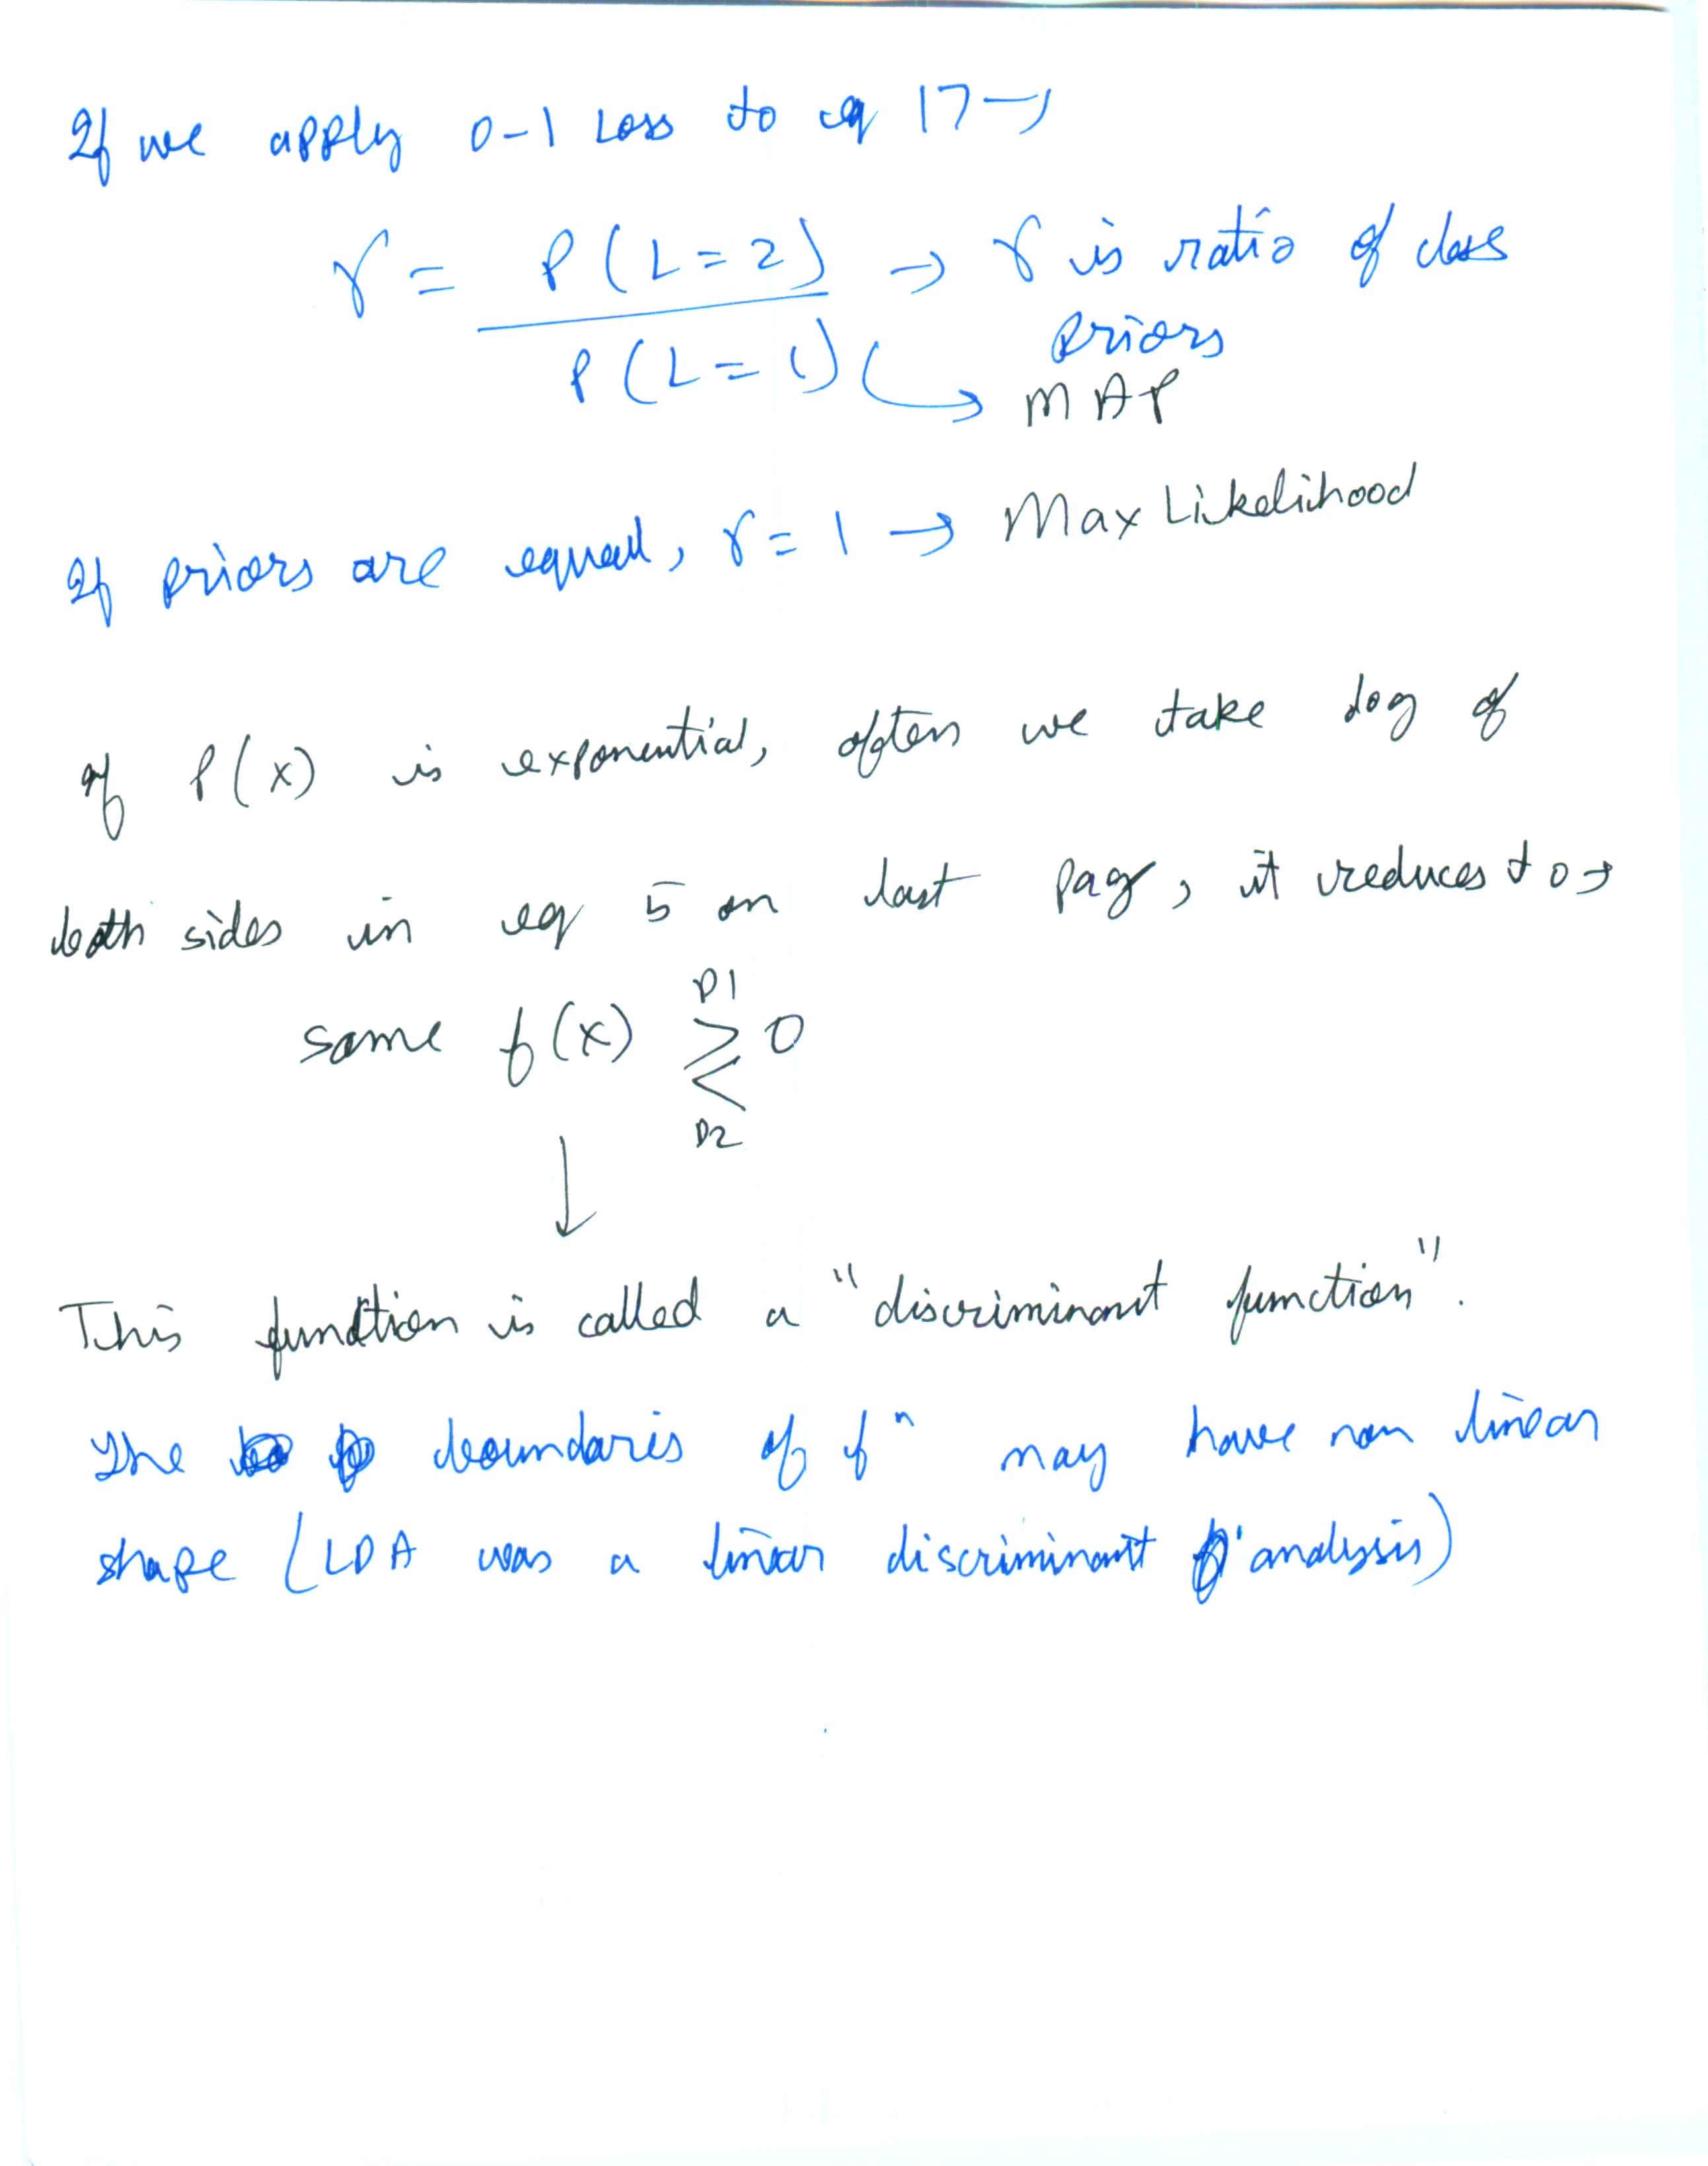 If we apply 0-1 Loss to eq 17→
γ = P(L=2) / P(L=1) → γ is ratio of class
priors
↳ MAP
If priors are equal, γ=1 → Max Likelihood
If P(x) is exponential, often we take log of
both sides in eq 5 on last pag, it reduces to→
some f(x) ≷ 0
D1
D2
↓
This function is called a "discriminant function".
The boundaris of fⁿ may have non linear
shape (LDA was a linear discriminant analysis)